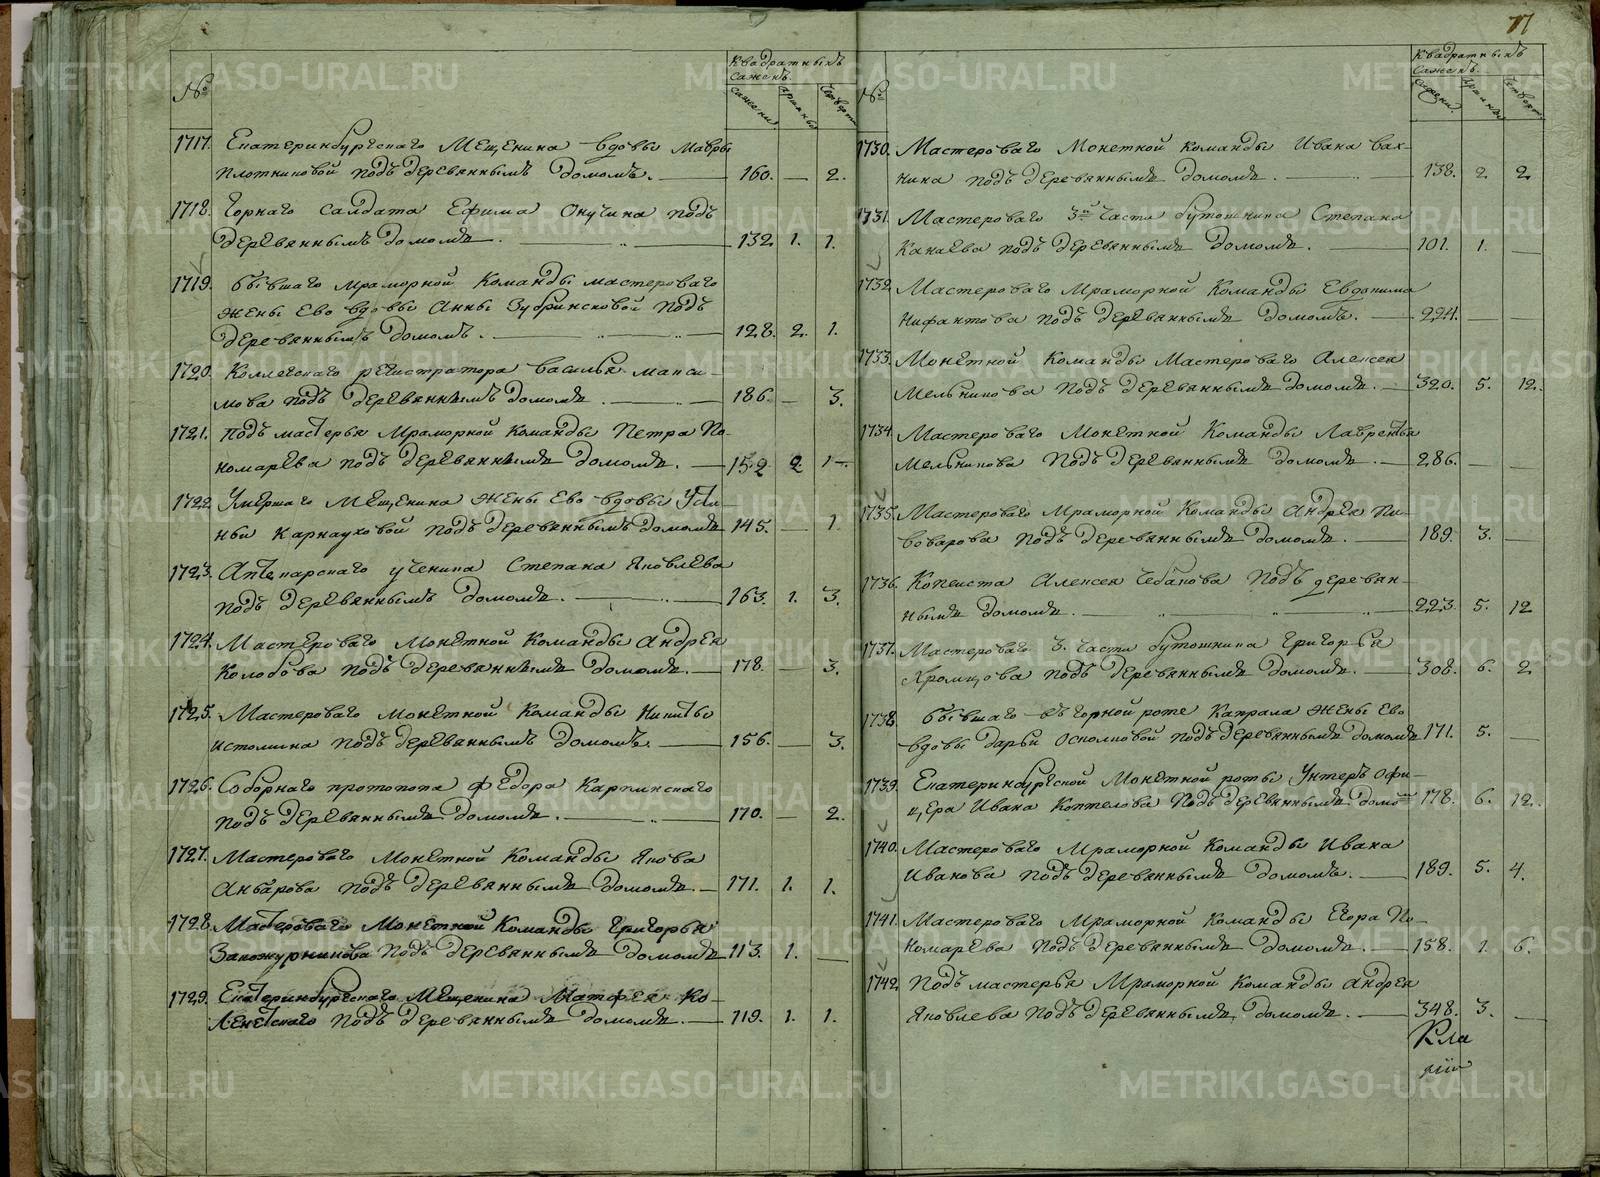 77
№ Квадратныхъ
саженъ.
сажени. аршины четверти
1717. Екатеринбургскаго Мещенина вдовы Мавры
Плотниковой подъ деревяннымъ домомъ. 160. — 2.
1718. Горнаго Салдата Ефима Онучина подъ
деревяннымъ домомъ. 132. 1. 1.
1719. бывшаго мраморной Команды мастероваго
жены Ево вдовы Анны Зубринсковой подъ
деревяннымъ домомъ. 128. 2. 1.
1720. Коллегскаго регистратора Василья Макси-
мова подъ деревяннымъ домомъ. 186. — 3.
1721. Подъ мастерья Мраморной Команды Петра По-
номарева подъ деревяннымъ домомъ. 152 2 1.
1722 Умершаго Мещенина жены Ево вдовы Усти-
ньи Карнауховой подъ деревяннымъ домомъ 145. — 1
1723. Аптекарскаго ученика Степана Яковлева
подъ деревяннымъ домомъ. 163. 1. 3.
1724. Мастероваго Монетной Команды Андрея
Колобова подъ деревяннымъ домомъ. 178. — 3.
1725. Мастероваго Монетной Команды Никиты
Истомина подъ деревяннымъ домомъ. 156. — 3.
1726. Соборнаго протопопа Федора Карпинскаго
подъ деревяннымъ домомъ. 170. — 2.
1727. Мастероваго Монетной Команды Якова
Анбарова подъ деревяннымъ домомъ. 171. 1. 1.
1728. Мастероваго Монетной Команды Григорья
подъ деревяннымъ домомъ 113. 1. —
1729. Екатеринбургскаго Мещенина Матфея Ко-
подъ деревяннымъ домомъ. 119. 1. 1.
№ Квадратныхъ
саженъ.
сажени. аршины четверти
1730. Мастероваго Монетной Команды Ивана Вах-
нина подъ деревяннымъ домомъ. 138. 2. 2
1731. Мастероваго 3й части бутошника Степана
Канаева подъ деревяннымъ домомъ. 101. 1. —
1732. Мастероваго Мраморной Команды Евдокима
Нифантова подъ деревяннымъ домомъ. 224. — —
1733. Монетной Команды Мастероваго Алексея
Мельникова подъ деревяннымъ домомъ. 320. 5. 12.
1734. Мастероваго Монетной Команды Лаврентья
Мельникова подъ деревяннымъ домомъ. 286. — —
1735. Мастероваго Мраморной Команды Андрея Пи-
воварова подъ деревяннымъ домомъ. 189. 3. —
1736. Копеиста Алексея Чебакова подъ деревян-
нымъ домомъ. 223. 5. 12
1737. Мастероваго 3. части бутошника Григорья
Хромцова подъ деревяннымъ домомъ. 308. 6. 2
1738. бывшаго въ горной роте Капрала жены Ево
вдовы Дарьи подъ деревяннымъ домомъ 171. 5. —
1739. Екатеринбургской Монетной роты Унтеръ офи-
цера Ивана Коптелова подъ деревяннымъ домомъ 178. 6. 12.
1740. Мастероваго Мраморной Команды Ивана
Иванова подъ деревяннымъ домомъ. 189. 5. 4.
1741. Мастероваго Мраморной Команды Егора По-
номарева подъ деревяннымъ домомъ. 158. 1. 6.
1742. Подъ мастерья Мраморной Команды Андрея
Яковлева подъ деревяннымъ домомъ. 348. 3. —
METRIKI.GASO-URAL.RU